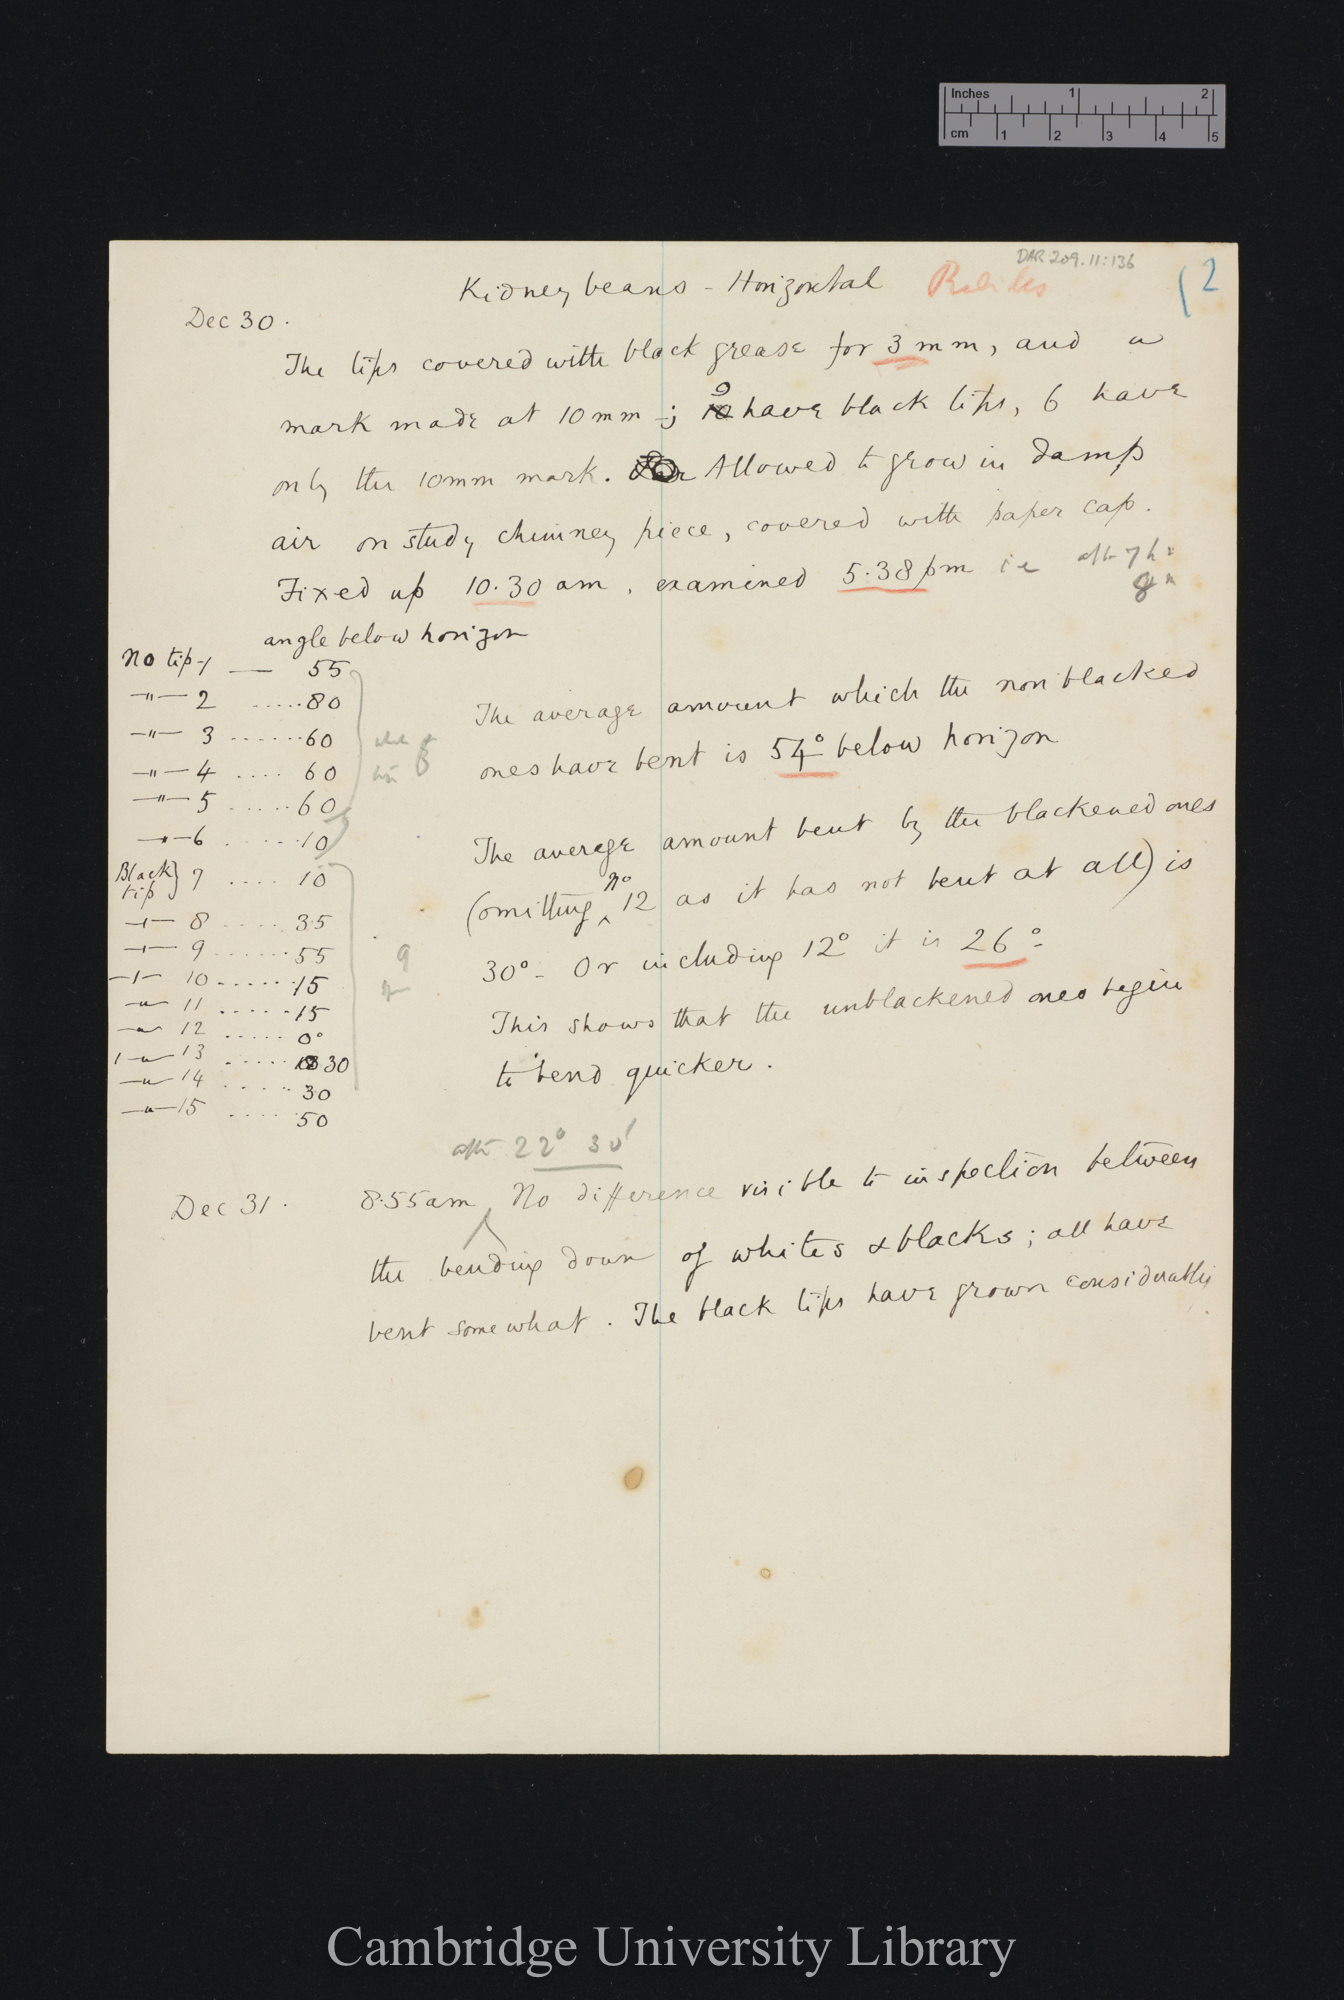 Inches 1 2
cm 1 2 3 4 5
DAR 209.11:136
Kidney beans - Horizontal
(2
Dec 30.
The tips covered with black grease for 3 mm, and a
mark made at 10 mm -; 9 have black tips, 6 have
only the 10mm mark. Allowed to grow in damp
air on study chimney piece, covered with paper cap.
Fixed up 10.30 am, examined 5.38 pm ie after 7h
8m
angle below horizon
No tip-1 — 55
—"— 2 .....80
—"— 3 ......60
—"— 4 .... 60
—"— 5 .....60
—"— 6 .....10
Black tip} 7 .... 10
—"— 8 ..... 35
—"— 9 ......55
—"— 10 ......15
—"— 11 ......15
—"— 12 ..... 0°
—"— 13 ..... 30
—"— 14 ..... 30
—"— 15 .... 50
9
The average amount which the non blacked
ones have bent is 54° below horizon
The average amount bent by the blackened ones
(omitting no 12 as it has not bent at all) is
30° - Or including 12° it is 26°-
This shows that the unblackened ones begin
to bend quicker.
after 22° 30'
Dec 31. 8.55 am, No difference visible to inspection between
the bending down of whites & blacks; all have
bent somewhat. The black tips have grown considerably
Cambridge University Library